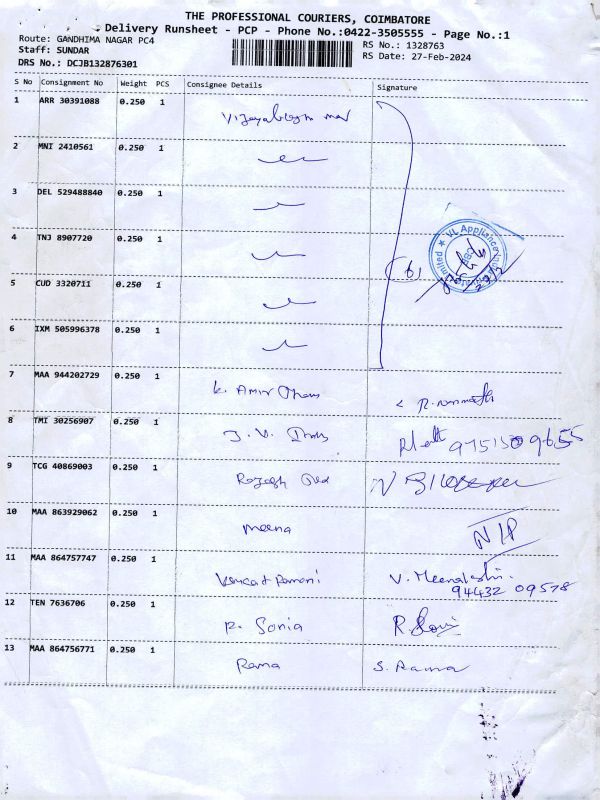 THE PROFESSIONAL COURIERS, COIMBATORE
Delivery Runsheet - PCP - Phone No.:0422-3505555 - Page No.:1
Route: GANDHIMA NAGAR PC4
RS No.: 1328763
Staff: SUNDAR
RS Date: 27-Feb-2024
DRS No.: DCJB132876301
S No Consignment No Weight PCS Consignee Details Signature
1 ARR 30391088 0.250 1
2 MNI 2410561 0.250 1
3 DEL 529488840 0.250 1
4 TNJ 8907720 0.250 1
5 CUD 3320711 0.250 1
6 IXM 505996378 0.250 1
7 MAA 944202729 0.250 1 K.
8 TMI 30256907 0.250 1 J. V. 9751509655
9 TCG 40869003 0.250 1 Rajesh
10 MAA 863929062 0.250 1 meena N/P
11 MAA 864757747 0.250 1 Vencat Ramani V. Meenakshi.
94432 09578
12 TEN 7636706 0.250 1 R. Sonia
13 MAA 864756771 0.250 1 Rama S. Rama